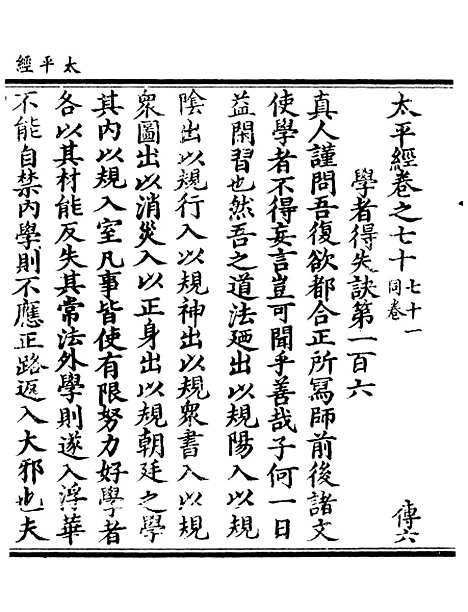 太平經
太平經卷之七十 七十一同卷 傳六
學者得失訣第一百六
真人謹問吾復欲都合正所寫師前後諸文
使學者不得妄言豈可聞乎善哉子何一日
益閑習也然吾之道法廼出以規陽入以規
陰出以規行入以規神出以規衆書入以規
衆圖出以消災入以正身出以規朝廷之學
其内以規入室凡事皆使有限努力好學者
各以其材能反失其常法外學則遂入浮華
不能自禁内學則不應正路返入大邪也夫